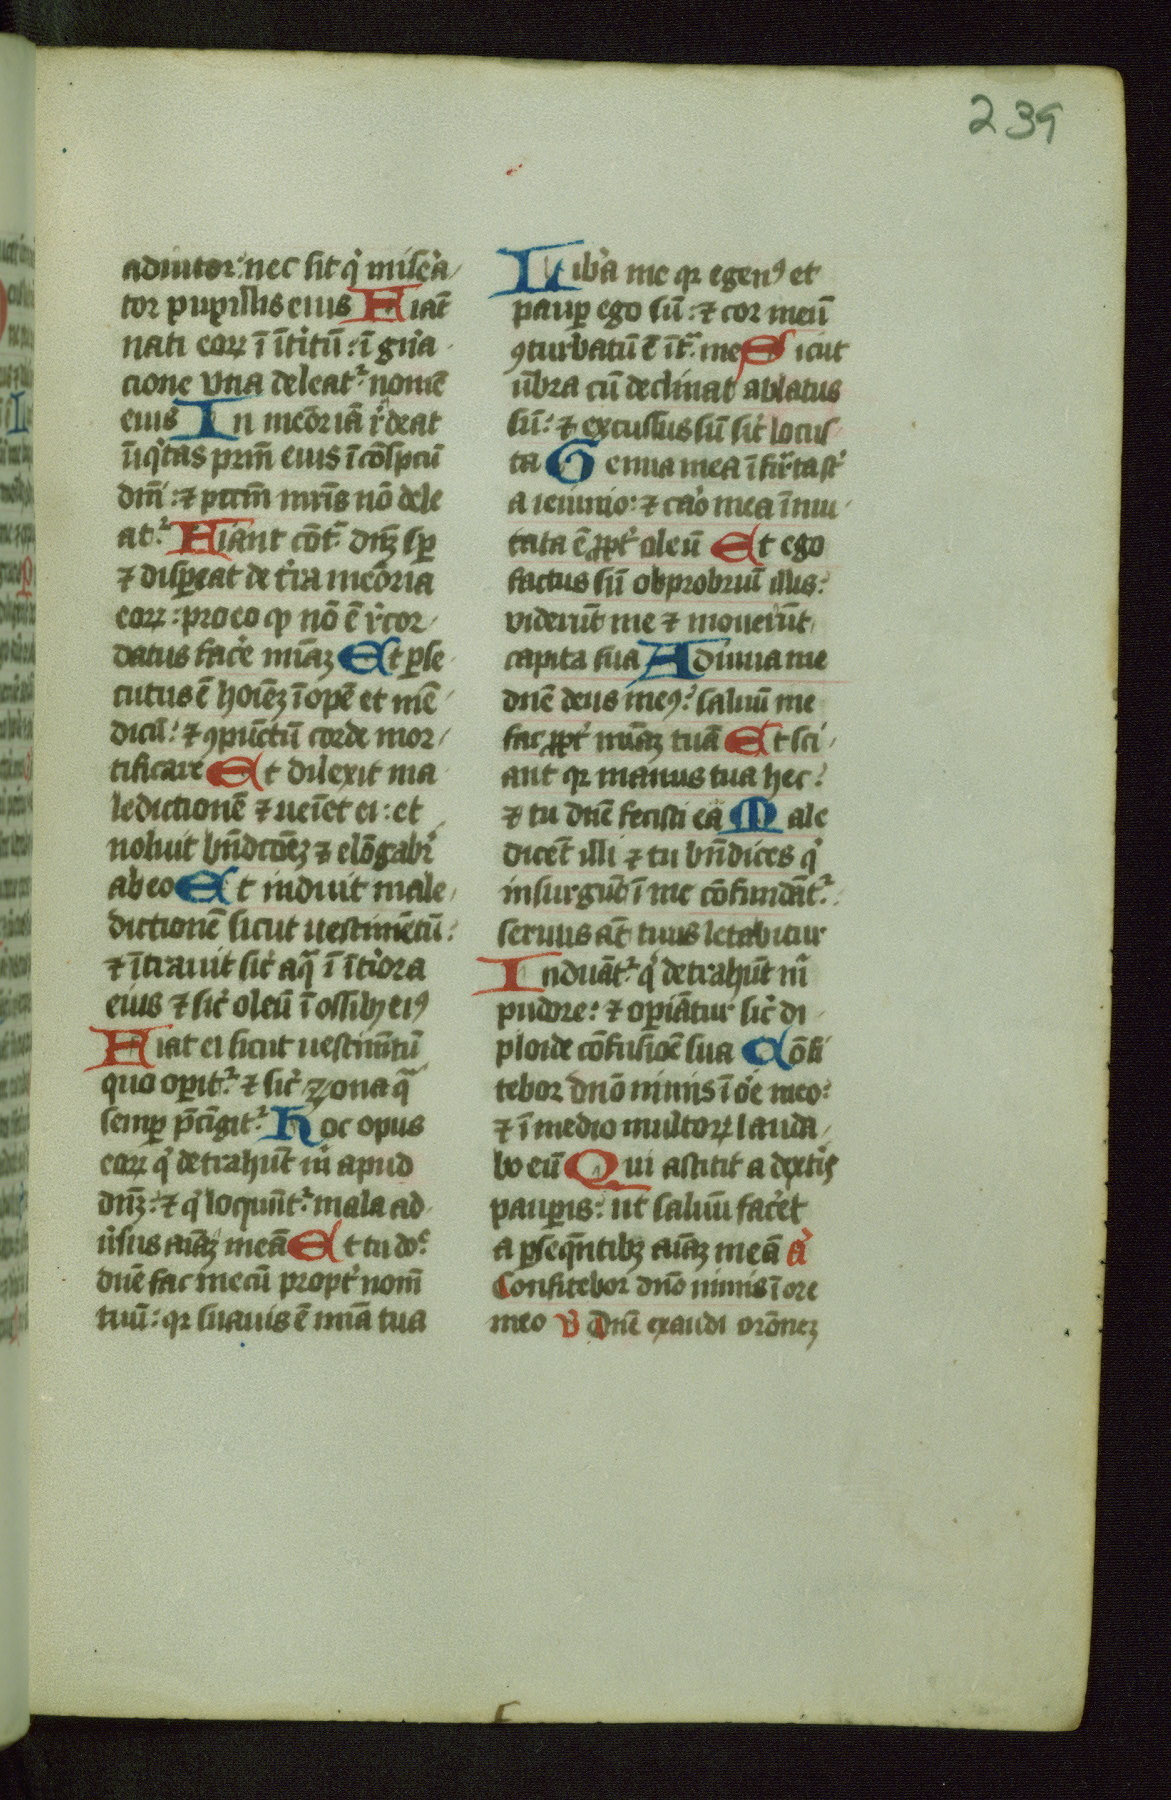 239
adiutor: nec sit qi misera
tor pupillis eius Fiāt
nati eorꝝ ī ītitū: ī gn̄a
cione vna deleatr nomē
eius In memōriā rdeat
īiqtas prm̄ eius ī cōspcū
dm̄i: ⁊ pccm̄ mr̄is nō dele
atr Fiant cōt dn̄ꝫ sꝑ
⁊ dispeat de tra memōria
eorꝝ: pro eo ꝙ nō ē rcor
datus facere mīaꝫ Et ꝑse
cutus ē hoīeꝫ īopē et mē
dicū: ⁊ ꝯpūctū corde mor
tificare Et dilexit ma
ledictionē ⁊ ueīet ei: et
noluit bn̄dcōeꝫ ⁊ elōgabr
ab eo Et induit male
dictionē sicut uestimētū:
⁊ ītrauit sic aqa ī ītiora
eius ⁊ sic oleū ī ossibꝫ eiꝰ
Fiat ei sicut uestim̄tū
quo opitr ⁊ sic zona qa
semꝑ p̄cīgitr Hoc opus
eorꝝ qi detrahūt m̄ apud
dn̄ꝫ: ⁊ qi loquūtr mala ad
usus aīaꝫ meā Et tu do
dn̄e fac mecū propt nom̄
tuū: qr suauis ē mīa tua
Libera me qr egenꝰ et
pauꝑ ego sū: ⁊ cor meū
ꝯturbatū ē īt me Sicut
ūbra cū declinat ablatus
sū: ⁊ excussus sū sic locus
ta Genua mea īfirtast
a ieiunio: ⁊ caro mea īmu
tata ē ꝓpt oleū Et ego
factus sū obprobriū illis:
viderūt me ⁊ mouerūt
capita sua Adiuua me
dn̄e deus meꝰ: saluū me
fac ꝓpt mīaꝫ tuā Et sci
ant qr manus tua hec:
⁊ tu dn̄e fecisti eā Male
dicēt illi ⁊ tu bn̄dices qi
insurgūt ī me cōfundātr:
seruus aūt tuus letabitur
Induātr qi detrahūt m̄
pudore: ⁊ opiātur sic di
ploide cōfusiōe sua Cōfi
tebor dn̄o nimis ī ore meo:
⁊ ī medio multorꝝ lauda
bo eū Qui astitit a dextis
paupis: ut saluū facet
a ꝑseqn̄tibꝫ aīaꝫ meā a
Confitebor dn̄o nimis ī ore
meo v Dn̄e exaudi orōneꝫ